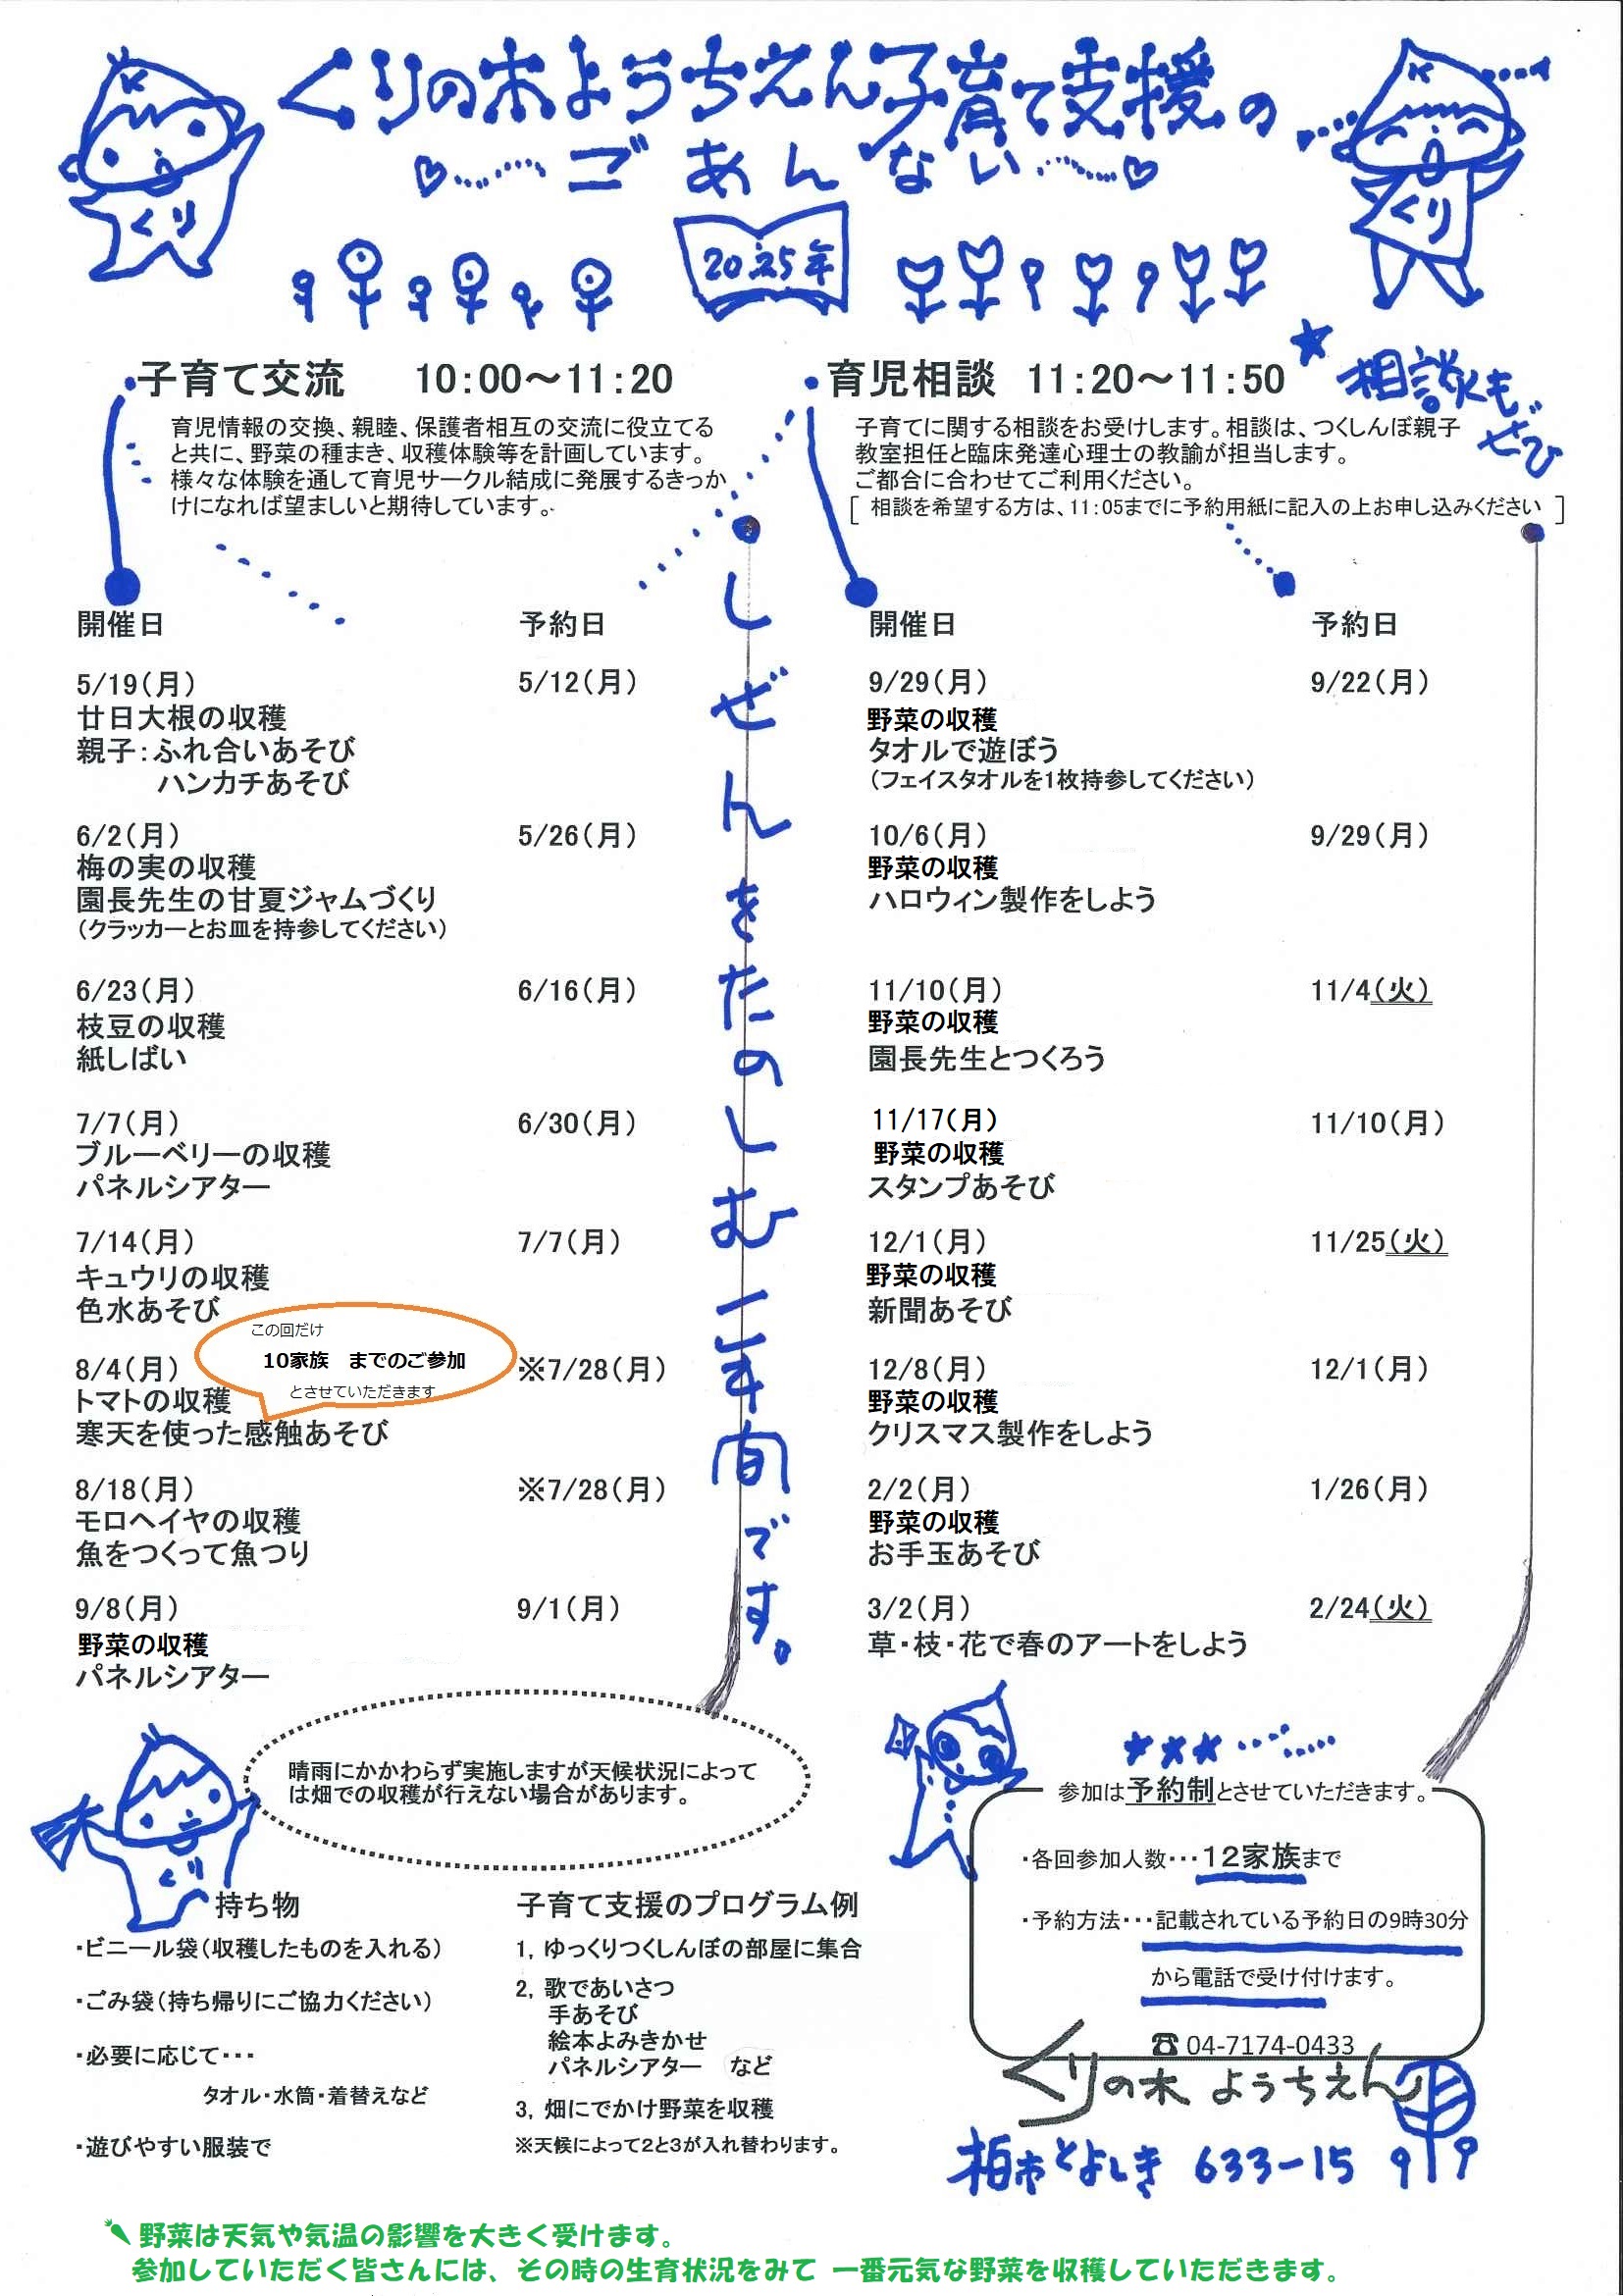 くりの木ようちえん子育て支援の
ごあんない
2025年
くり
くり
子育て交流 10:00～11:20
育児情報の交換、親睦、保護者相互の交流に役立てる
と共に、野菜の種まき、収穫体験等を計画しています。
様々な体験を通して育児サークル結成に発展するきっか
けになれば望ましいと期待しています。
育児相談 11:20～11:50
★相談も
ぜひ
子育てに関する相談をお受けします。相談は、つくしんぼ親子
教室担任と臨床発達心理士の教諭が担当します。
ご都合に合わせてご利用ください。
[ 相談を希望する方は、11:05までに予約用紙に記入の上お申し込みください ]
開催日 予約日
5/19(月) 5/12(月)
廿日大根の収穫
親子：ふれ合いあそび
ハンカチあそび
6/2(月) 5/26(月)
梅の実の収穫
園長先生の甘夏ジャムづくり
(クラッカーとお皿を持参してください)
6/23(月) 6/16(月)
枝豆の収穫
紙しばい
7/7(月) 6/30(月)
ブルーベリーの収穫
パネルシアター
7/14(月) 7/7(月)
キュウリの収穫
色水あそび
この回だけ
10家族 までのご参加
とさせていただきます
8/4(月) ※7/28(月)
トマトの収穫
寒天を使った感触あそび
8/18(月) ※7/28(月)
モロヘイヤの収穫
魚をつくって魚つり
9/8(月) 9/1(月)
野菜の収穫
パネルシアター
しぜんをたのしむ一年間です。
開催日 予約日
9/29(月) 9/22(月)
野菜の収穫
タオルで遊ぼう
(フェイスタオルを1枚持参してください)
10/6(月) 9/29(月)
野菜の収穫
ハロウィン製作をしよう
11/10(月) 11/4(火)
野菜の収穫
園長先生とつくろう
11/17(月) 11/10(月)
野菜の収穫
スタンプあそび
12/1(月) 11/25(火)
野菜の収穫
新聞あそび
12/8(月) 12/1(月)
野菜の収穫
クリスマス製作をしよう
2/2(月) 1/26(月)
野菜の収穫
お手玉あそび
3/2(月) 2/24(火)
草・枝・花で春のアートをしよう
晴雨にかかわらず実施しますが天候状況によって
は畑での収穫が行えない場合があります。
くり
持ち物
・ビニール袋(収穫したものを入れる)
・ごみ袋(持ち帰りにご協力ください)
・必要に応じて・・・
タオル・水筒・着替えなど
・遊びやすい服装で
子育て支援のプログラム例
1, ゆっくりつくしんぼの部屋に集合
2, 歌であいさつ
手あそび
絵本よみきかせ
パネルシアター など
3, 畑にでかけ野菜を収穫
※天候によって2と3が入れ替わります。
★★★
参加は予約制とさせていただきます。
・各回参加人数・・・12家族まで
・予約方法・・・記載されている予約日の9時30分
から電話で受け付けます。
☎ 04-7174-0433
くりの木 ようちえん
柏市とよしき 633-15
野菜は天気や気温の影響を大きく受けます。
参加していただく皆さんには、その時の生育状況をみて 一番元気な野菜を収穫していただきます。